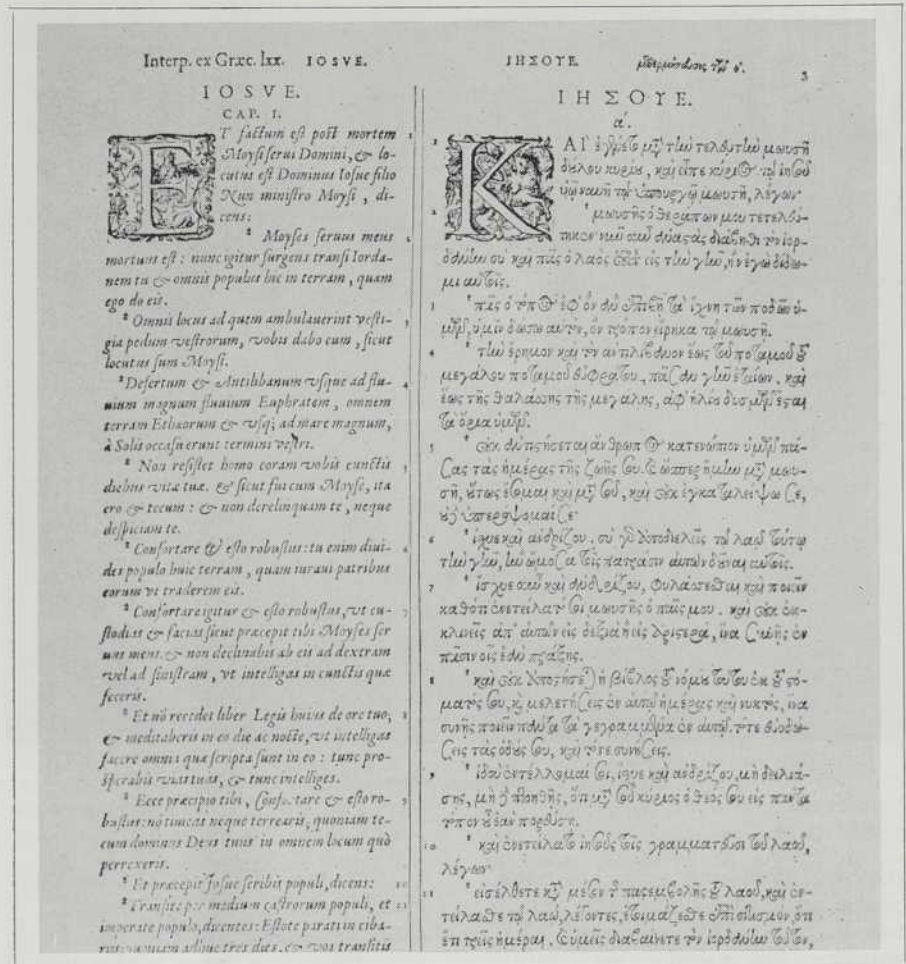 Interp. ex Græc. lxx. IOSVE.
IOSVE.
CAP. I.
ET factum est post mortem 1
Moysi serui Domini, & lo-
cutus est Dominus Iosue filio
Nun ministro Moysi, di-
cens:
Moyses seruus meus 2
mortuus est: nunc igitur surgens transi Iorda-
nem tu & omnis populus hic in terram, quam
ego do eis.
Omnis locus ad quem ambulauerint vesti- 3
gia pedum vestrorum, vobis dabo eum, sicut
locutus sum Moysi.
Desertum & Antilibanum vsque ad flu- 4
uium magnum fluuium Euphratem, omnem
terram Ethæorum & vsq; ad mare magnum,
à Solis occasu erunt termini vestri.
Non resistet homo coram vobis cunctis 5
diebus vitæ tuæ. & sicut fui cum Moyse, ita
ero & tecum: & non derelinquam te, neque
despiciam te.
Confortare & esto robustus: tu enim diui- 6
des populo huic terram, quam iuraui patribus
eorum vt traderem eis.
Confortare igitur & esto robustus, vt cu- 7
stodias & facias sicut præcepit tibi Moyses ser
uus meus. & non declinabis ab eis ad dextram
vel ad sinistram, vt intelligas in cunctis quæ
feceris.
Et nō recedet liber Legis huius de ore tuo; 8
& meditaberis in eo die ac nocte, vt intelligas
facere omnia quæ scripta sunt in eo: tunc pro-
sperabis vias tuas, & tunc intelliges.
Ecce præcipio tibi, Confortare & esto ro- 9
bustus: nō timeas neque terrearis, quoniam te-
cum dominus Deus tuus in omnem locum quò
perrexeris.
Et præcepit Josue scribis populi, dicens: 10
Transite per medium castrorum populi, et 11
imperate populo, dicentes: Estote parati in ciba-
riis, quoniam adhuc tres dies, & vos transitis
ΙΗΣΟΥΕ. μεθερμήνευσις τῶν ο΄. 3
ΙΗΣΟΥΕ.
α΄.
1 ΚΑΙ ἐγένετο μετὰ τὴν τελευτὴν μωυσῆ
δούλου κυρίου, καὶ εἶπε κύριος τῷ ἰησοῦ
υἱῷ ναυῆ τῷ ὑπουργῷ μωυσῆ, λέγων·
2 μωυσῆς ὁ θεράπων μου τετελεύ-
τηκε· νῦν οὖν ἀναστὰς διάβηθι τὸν ἰορ-
δάνην σὺ καὶ πᾶς ὁ λαὸς οὗτος εἰς τὴν γῆν, ἣν ἐγὼ δίδω-
μι αὐτοῖς.
3 πᾶς ὁ τόπος ἐφ᾽ ὃν ἂν ἐπιβῇ τὰ ἴχνη τῶν ποδῶν ὑ-
μῶν, ὑμῖν δώσω αὐτὸν, ὃν τρόπον εἴρηκα τῷ μωυσῆ.
4 τὴν ἔρημον καὶ τὸν ἀντιλίβανον ἕως τοῦ ποταμοῦ τοῦ
μεγάλου ποταμοῦ εὐφράτου, πᾶσαν γῆν ἐταίων. καὶ
ἕως τῆς θαλάσσης τῆς μεγάλης, ἀφ᾽ ἡλίου δυσμῶν ἔσται
τὰ ὅρια ὑμῶν.
5 οὐκ ἀντιστήσεται ἄνθρωπος κατενώπιον ὑμῶν πά-
σας τὰς ἡμέρας τῆς ζωῆς σου. καὶ ὥσπερ ἤμην μετὰ μωυ-
σῆ, οὕτως ἔσομαι καὶ μετὰ σοῦ, καὶ οὐκ ἐγκαταλείψω σε,
οὐδ᾽ ὑπερόψομαί σε·
6 ἴσχυε καὶ ἀνδρίζου. σὺ γὰρ ἀποδιελεῖς τῷ λαῷ τούτῳ
τὴν γῆν, ἣν ὤμοσα τοῖς πατράσιν αὐτῶν δοῦναι αὐτοῖς.
7 ἴσχυε οὖν καὶ ἀνδρίζου, φυλάσσεσθαι καὶ ποιεῖν
καθότι ἐνετείλατό σοι μωυσῆς ὁ παῖς μου. καὶ οὐκ ἐκ-
κλινεῖς ἀπ᾽ αὐτῶν εἰς δεξιὰ ἢ εἰς ἀριστερὰ, ἵνα συνῇς ἐν
πᾶσιν οἷς ἐὰν πράξῃς.
8 καὶ οὐκ ἀποστήσεται ἡ βίβλος τοῦ νόμου τούτου ἐκ τοῦ στό-
ματός σου, καὶ μελετήσεις ἐν αὐτῷ ἡμέρας καὶ νυκτὸς, ἵνα
συνῇς ποιεῖν πάντα τὰ γεγραμμένα ἐν αὐτῷ. τότε εὐοδώ-
σεις τὰς ὁδούς σου, καὶ τότε συνήσεις.
9 ἰδοὺ ἐντέλλομαί σοι, ἴσχυε καὶ ἀνδρίζου, μὴ δειλιά-
σῃς, μὴ φοβηθῇς, ὅτι μετὰ σοῦ κύριος ὁ θεός σου εἰς πάντα
τόπον οὗ ἐὰν πορεύσῃ.
10 καὶ ἐνετείλατο ἰησοῦς τοῖς γραμματεῦσι τοῦ λαοῦ,
λέγων·
11 εἰσέλθετε κατὰ μέσον τῆς παρεμβολῆς τοῦ λαοῦ, καὶ ἐν-
τείλασθε τῷ λαῷ, λέγοντες, ἑτοιμάζεσθε ἐπισιτισμὸν, ὅτι
ἔτι τρεῖς ἡμέραι, καὶ ὑμεῖς διαβαίνετε τὸν ἰορδάνην τοῦτον,